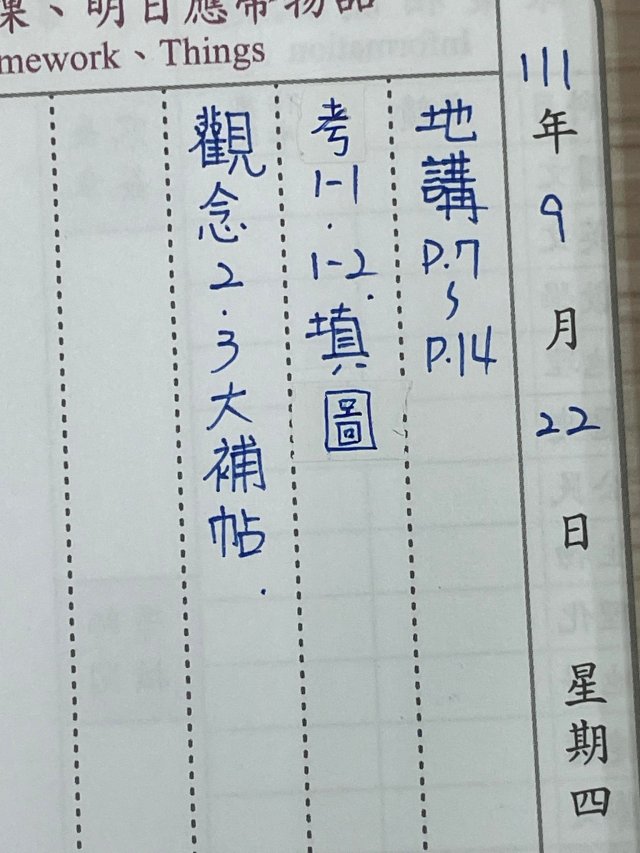 課、明日應帶物品
mework、Things
111年9月22日星期四
地講P.7~P.14
考1-1.1-2.填圖
觀念2.3大補帖.